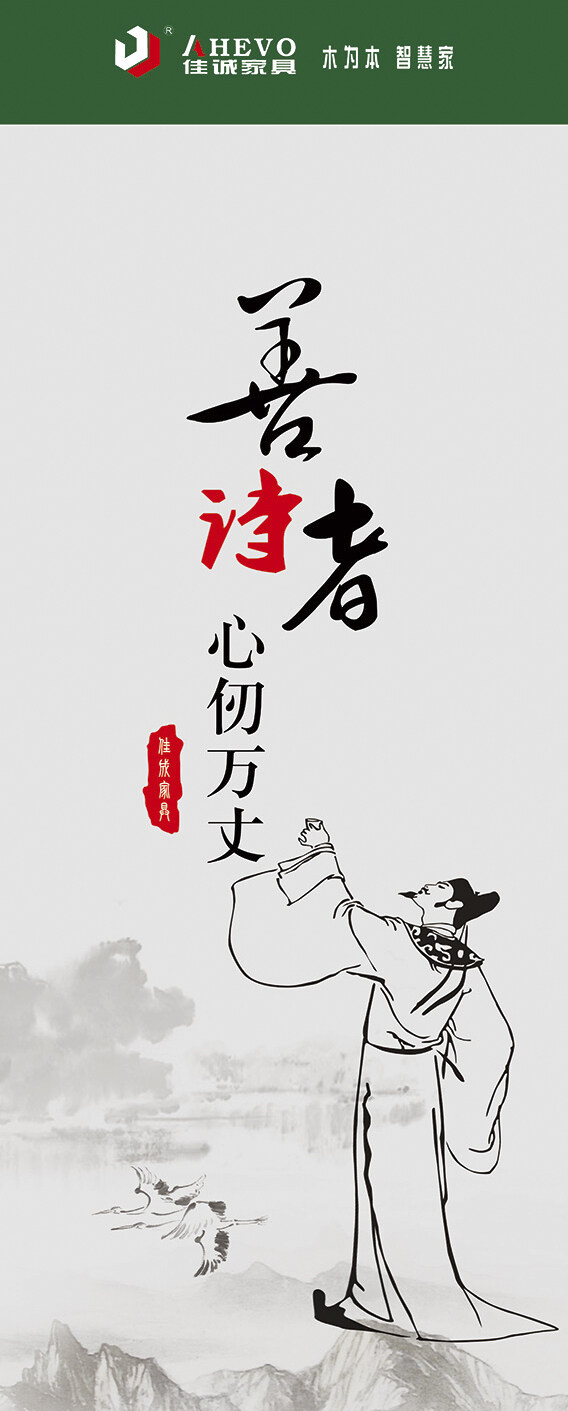 ® AHEVO
佳诚家具
木为本 智慧家
善
诗者
心仞万丈
佳成家具